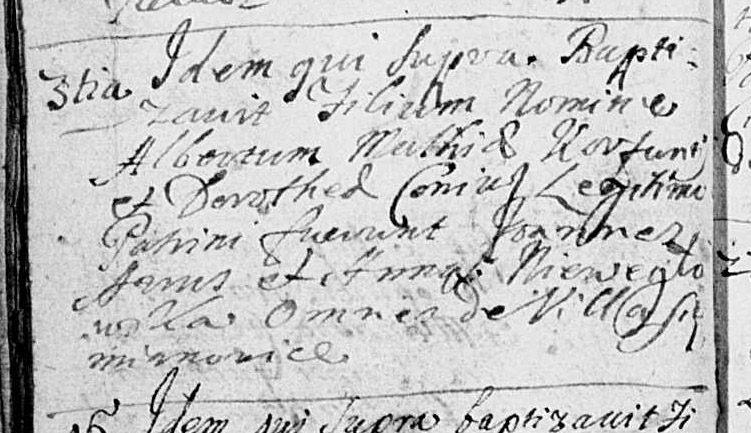 3tia Idem qui supra. Bapti-
zavit Filium Nomine
Albertum Mathiæ
et Dorothea Coniug Legitime
Patrini fuerunt Joannes
et Anna Niewęglo
wska Omnes de Villa Si
mianovice
Idem qui supra baptizavit Fi